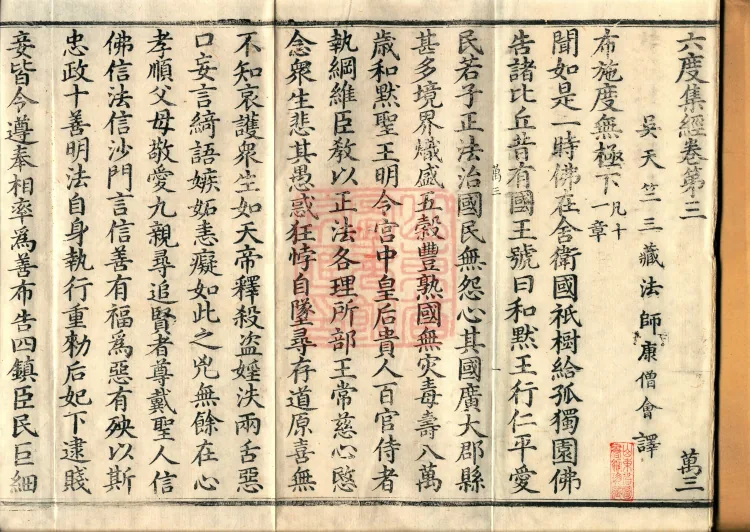 六度集經卷第三 萬三
吳天竺三藏法師康僧會譯
布施度無極下 凡十一章
聞如是一時佛在舍衛國祇樹給孤獨園佛
告諸比丘昔有國王號曰和默王行仁平愛
民若子正法治國民無怨心其國廣大郡縣
萬三
甚多境界熾盛五穀豐熟國無灾毒壽八萬
歲和默聖王明令宮中皇后貴人百官侍者
執綱維臣教以正法各理所部王常慈心愍
念衆生悲其愚惑狂悖自墜尋存道原喜無
不知哀護衆生如天帝釋殺盜婬泆兩舌惡
口妄言綺語嫉妬恚癡如此之兇無餘在心
孝順父母敬愛九親尋追賢者尊戴聖人信
佛信法信沙門言信善有福為惡有殃以斯
忠政十善明法自身執行重勑后妃下逮賤
妾皆令遵奉相率為善布告四鎮臣民巨細